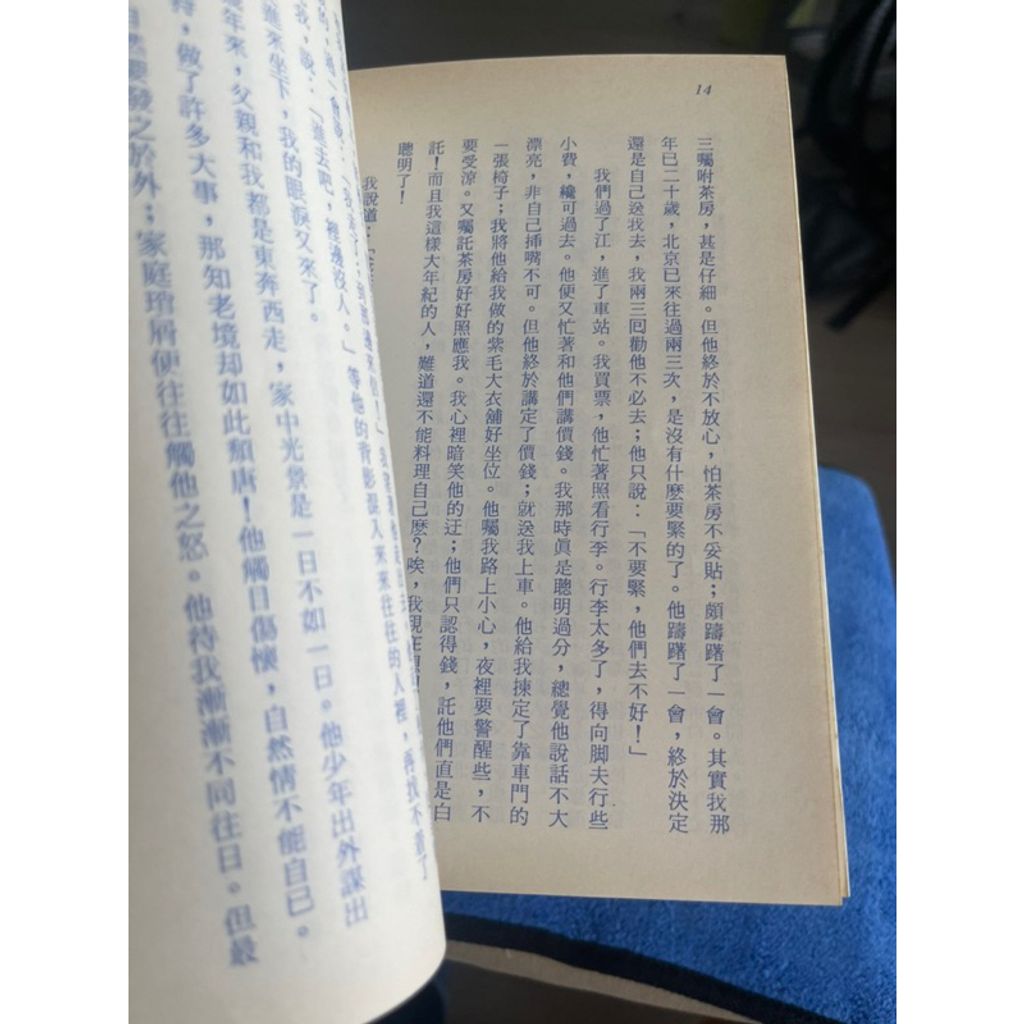 14
三囑咐茶房，甚是仔細。但他終於不放心，怕茶房不妥貼；頗躊躇了一會。其實我那
年已二十歲，北京已來往過兩三次，是沒有什麼要緊的了。他躊躇了一會，終於決定
還是自己送我去，我兩三回勸他不必去；他只說：「不要緊，他們去不好！」
我們過了江，進了車站。我買票，他忙著照看行李。行李太多了，得向脚夫行些
小費，纔可過去。他便又忙著和他們講價錢。我那時眞是聰明過分，總覺他說話不大
漂亮，非自己揷嘴不可。但他終於講定了價錢；就送我上車。他給我揀定了靠車門的
一張椅子；我將他給我做的紫毛大衣舖好坐位。他囑我路上小心，夜裡要警醒些，不
要受涼。又囑託茶房好好照應我。我心裡暗笑他的迂；他們只認得錢，託他們直是白
託！而且我這樣大年紀的人，難道還不能料理自己麼？唉，我現在
聰明了！
我說道：「
我，說：「進去吧，裡邊沒人。」等他的背影混入來來往往的人裡，再找不着了
進來坐下，我的眼淚又來了。
年來，父親和我都是東奔西走，家中光景是一日不如一日。他少年出外謀出
持，做了許多大事，那知老境却如此頹唐！他觸目傷懷，自然情不能自已。
之於外；家庭瑣屑便往往觸他之怒。他待我漸漸不同往日。但最